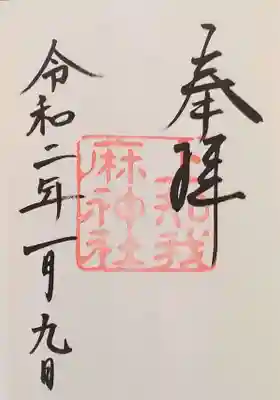 奉拝
下知我
麻神社
令和二年一月九日